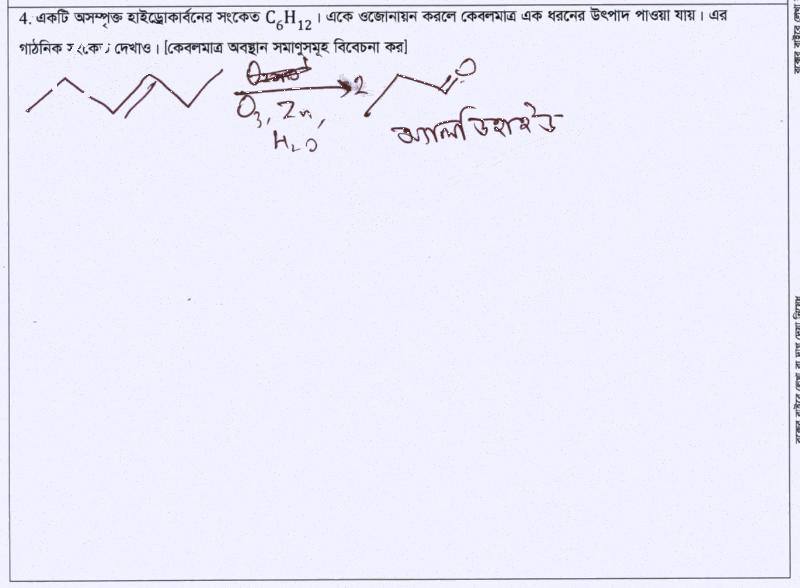 4. একটি অসম্পৃক্ত হাইড্রোকার্বনের সংকেত C₆H₁₂ । একে ওজোনায়ন করলে কেবলমাত্র এক ধরনের উৎপাদ পাওয়া যায় । এর
গাঠনিক দেখাও । [কেবলমাত্র অবস্থান সমাণুসমূহ বিবেচনা কর]
O₃, Zn,
H₂O
2
O
অ্যালডিহাইড